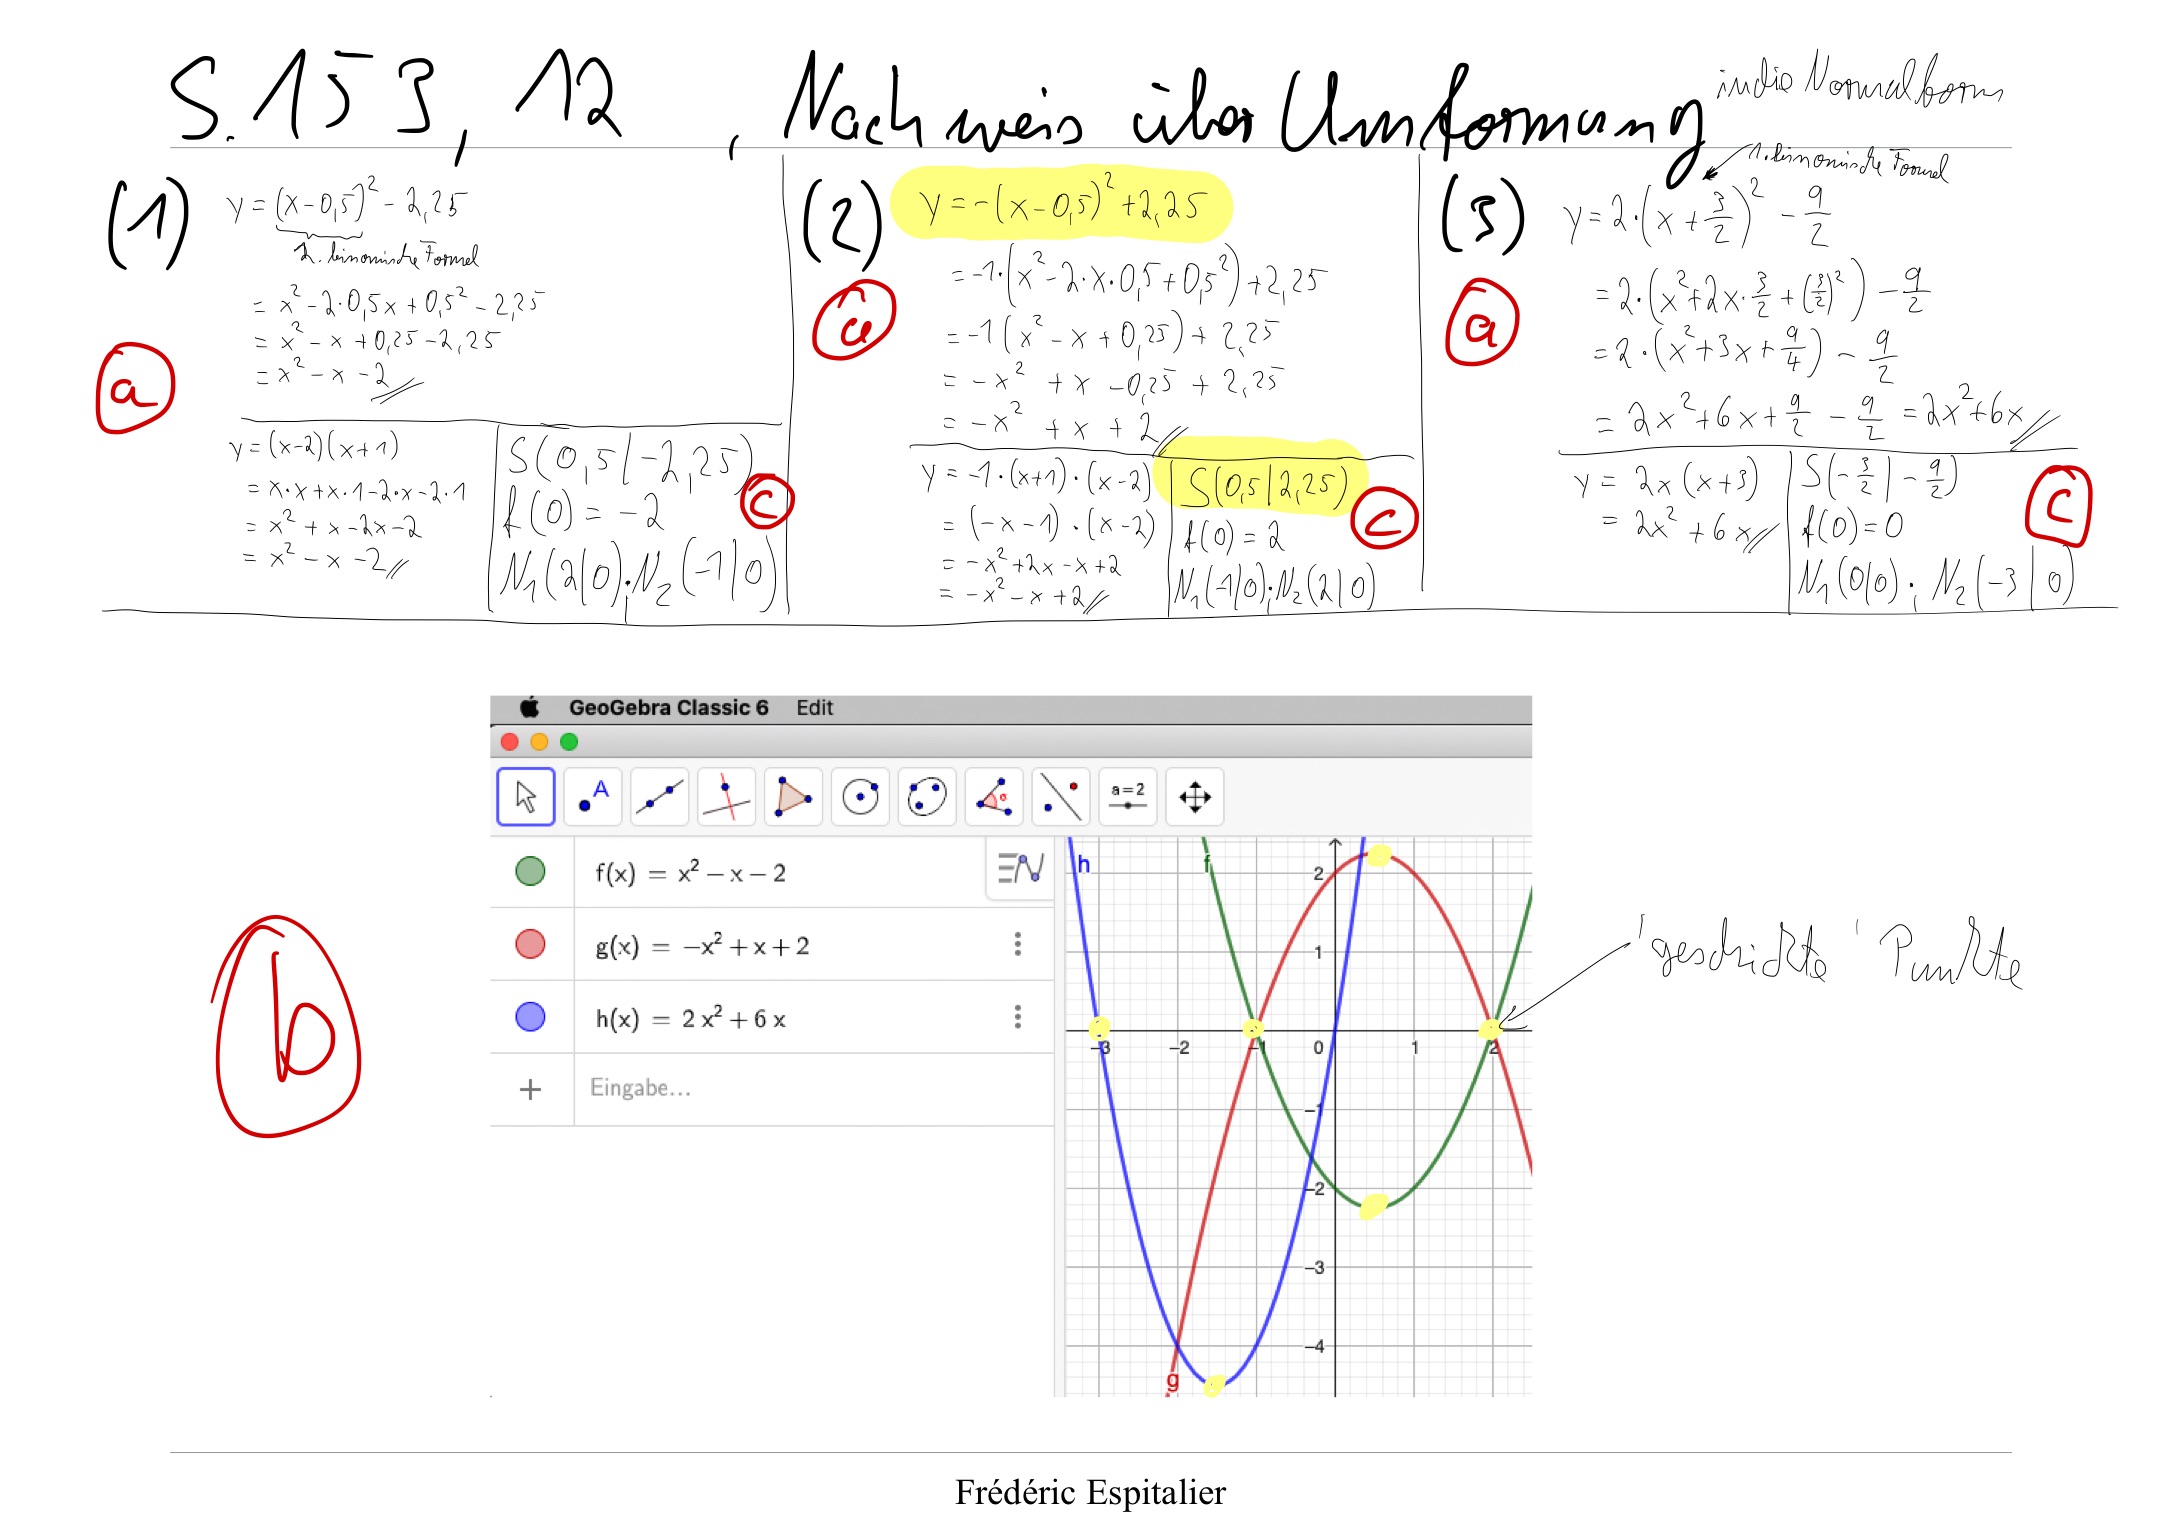 S. 153, 12, Nachweis über Umformung in die Normalform
(1)
y = (x-0,5)² - 2,25
2. binomische Formel
= x² - 2·0,5x + 0,5² - 2,25
= x² - x + 0,25 - 2,25
= x² - x - 2
a
y = (x-2)(x+1)
= x·x + x·1 - 2·x - 2·1
= x² + x - 2x - 2
= x² - x - 2
S(0,5|-2,25)
f(0) = -2
N₁(2|0); N₂(-1|0)
c
(2)
y = -(x-0,5)² + 2,25
= -1·(x² - 2·x·0,5 + 0,5²) + 2,25
= -1(x² - x + 0,25) + 2,25
= -x² + x - 0,25 + 2,25
= -x² + x + 2
a
y = -1·(x+1)·(x-2)
= (-x-1)·(x-2)
= -x² + 2x - x + 2
= -x² - x + 2
S(0,5|2,25)
f(0) = 2
N₁(-1|0); N₂(2|0)
c
(3)
1. binomische Formel
y = 2·(x + 3/2)² - 9/2
= 2·(x² + 2x·3/2 + (3/2)²) - 9/2
= 2·(x² + 3x + 9/4) - 9/2
= 2x² + 6x + 9/2 - 9/2 = 2x² + 6x
a
y = 2x(x+3)
= 2x² + 6x
S(-3/2|-9/2)
f(0) = 0
N₁(0|0); N₂(-3|0)
c
b
GeoGebra Classic 6 Edit
A
a = 2
f(x) = x² – x – 2
g(x) = –x² + x + 2
h(x) = 2 x² + 6 x
+ Eingabe...
h
f
g
2
1
–3 –2 –1 0 1 2
–1
–2
–3
–4
'geschickte' Punkte
Frédéric Espitalier